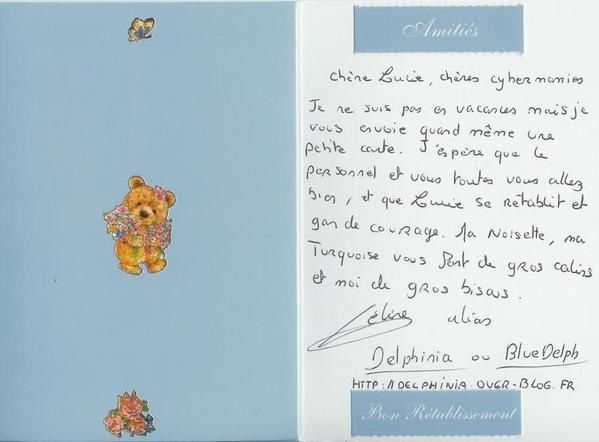 Amitiés
Chère Lucie, chères cybermamies
Je ne suis pas en vacances mais je
vous envoie quand même une
petite carte. J'espère que le
personnel et vous toutes vous allez
bien, et que Lucie se rétablit et
garde courage. Ma Noisette, ma
Turquoise vous font de gros calins
et moi de gros bisous.
Céline alias
Delphinia ou BlueDelph
HTTP://DELPHINIA.OVER-BLOG.FR
Bon Rétablissement